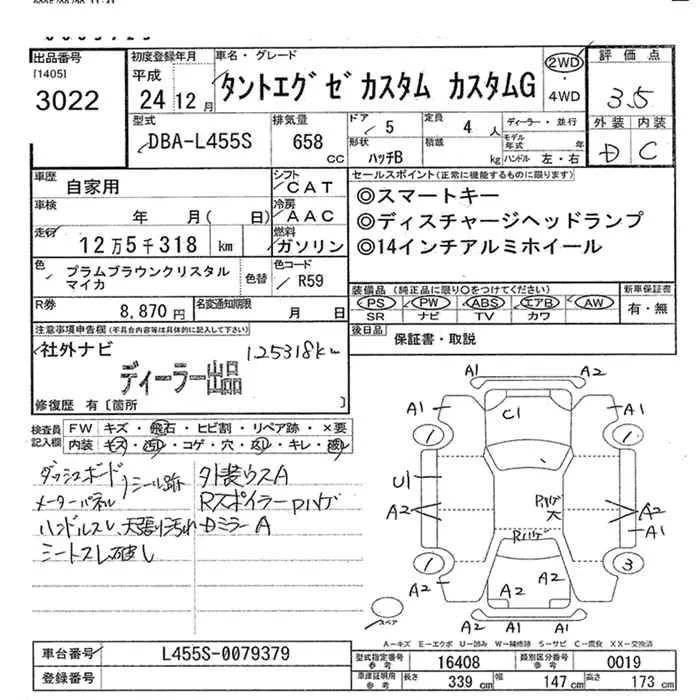 出品番号
[1405]
3022
初度登録年月
平成
24 12月
車名・グレード
タントエグゼ カスタム カスタムG
2WD
・
4WD
評価点
3.5
外装 内装
D C
型式
DBA-L455S
排気量
658
CC
ドア
5
定員
4 人
ディーラー・並行
形状
ハッチB
積載
kg
モデル年式 年
ハンドル 左・右
車歴
自家用
シフト
CAT
車検
年 月( 日)
冷房
AAC
走行
12万5千318 km
燃料
ガソリン
色
プラムブラウンクリスタル
マイカ
色替
色コード
R59
R券
8,870 円
名変通知期限
月 日
セールスポイント(正常に機能するものに限ります)
◎スマートキー
◎ディスチャージヘッドランプ
◎14インチアルミホイール
装備品 (純正品に限り○をつけてください)
PS PW ABS エアB AW
SR ナビ TV カワ
新車保証書
有・無
後日品
保証書・取説
注意事項申告欄(不具合内容等は具体的に記入して下さい)
社外ナビ
125318km
ディーラー出品
修復歴 有〔箇所 〕
検査員
記入欄
FW キズ・飛石・ヒビ割・リペア跡・×要
内装 キズ・汚れ・コゲ・穴・スレ・キレ・破れ
ダッシュボード
メーターパネル
シール跡
ハンドルスレ、天張り汚れ
シートスレ破レ
外装ウスA
Rスポイラー Pハゲ
Dミラー A
A1 A2
A1 C1 A1
1 1
U1
A2 Pハゲ 大 A2
A1
Rハゲ
1 3
A2 A2 A2
A2 A1 A2
スペア
A－キズ E－エクボ U－凹み W－補修跡 S－サビ C－腐食 XX－交換済
車台番号
L455S-0079379
登録番号
型式指定番号
参考
16408
類別区分番号
参考
0019
車庫証明用
参考
長さ 339 cm 幅 147 cm 高さ 173 cm